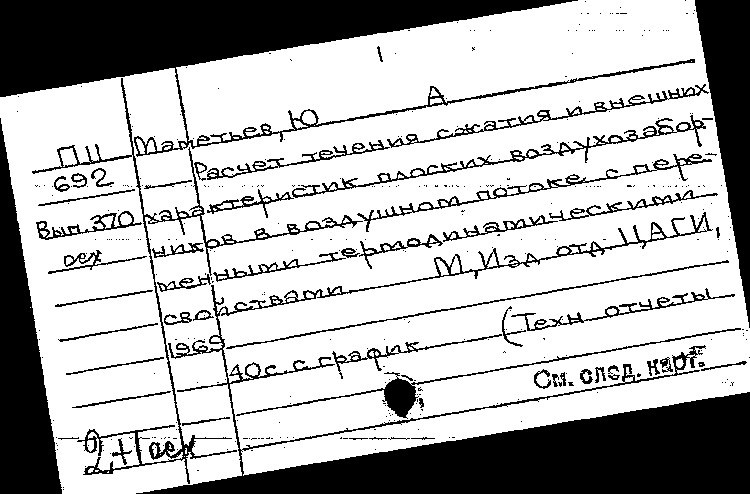 ПЦ Маметьев, Ю А
692 Расчет течения сжатия и внешних
Вып. 370 характеристик плоских воздухозабор-
ников в воздушном потоке с пере-
менными термодинамическими
свойствами. М, Изд отд ЦАГИ,
1969
40с с график (Техн отчеты
См. след. карт.